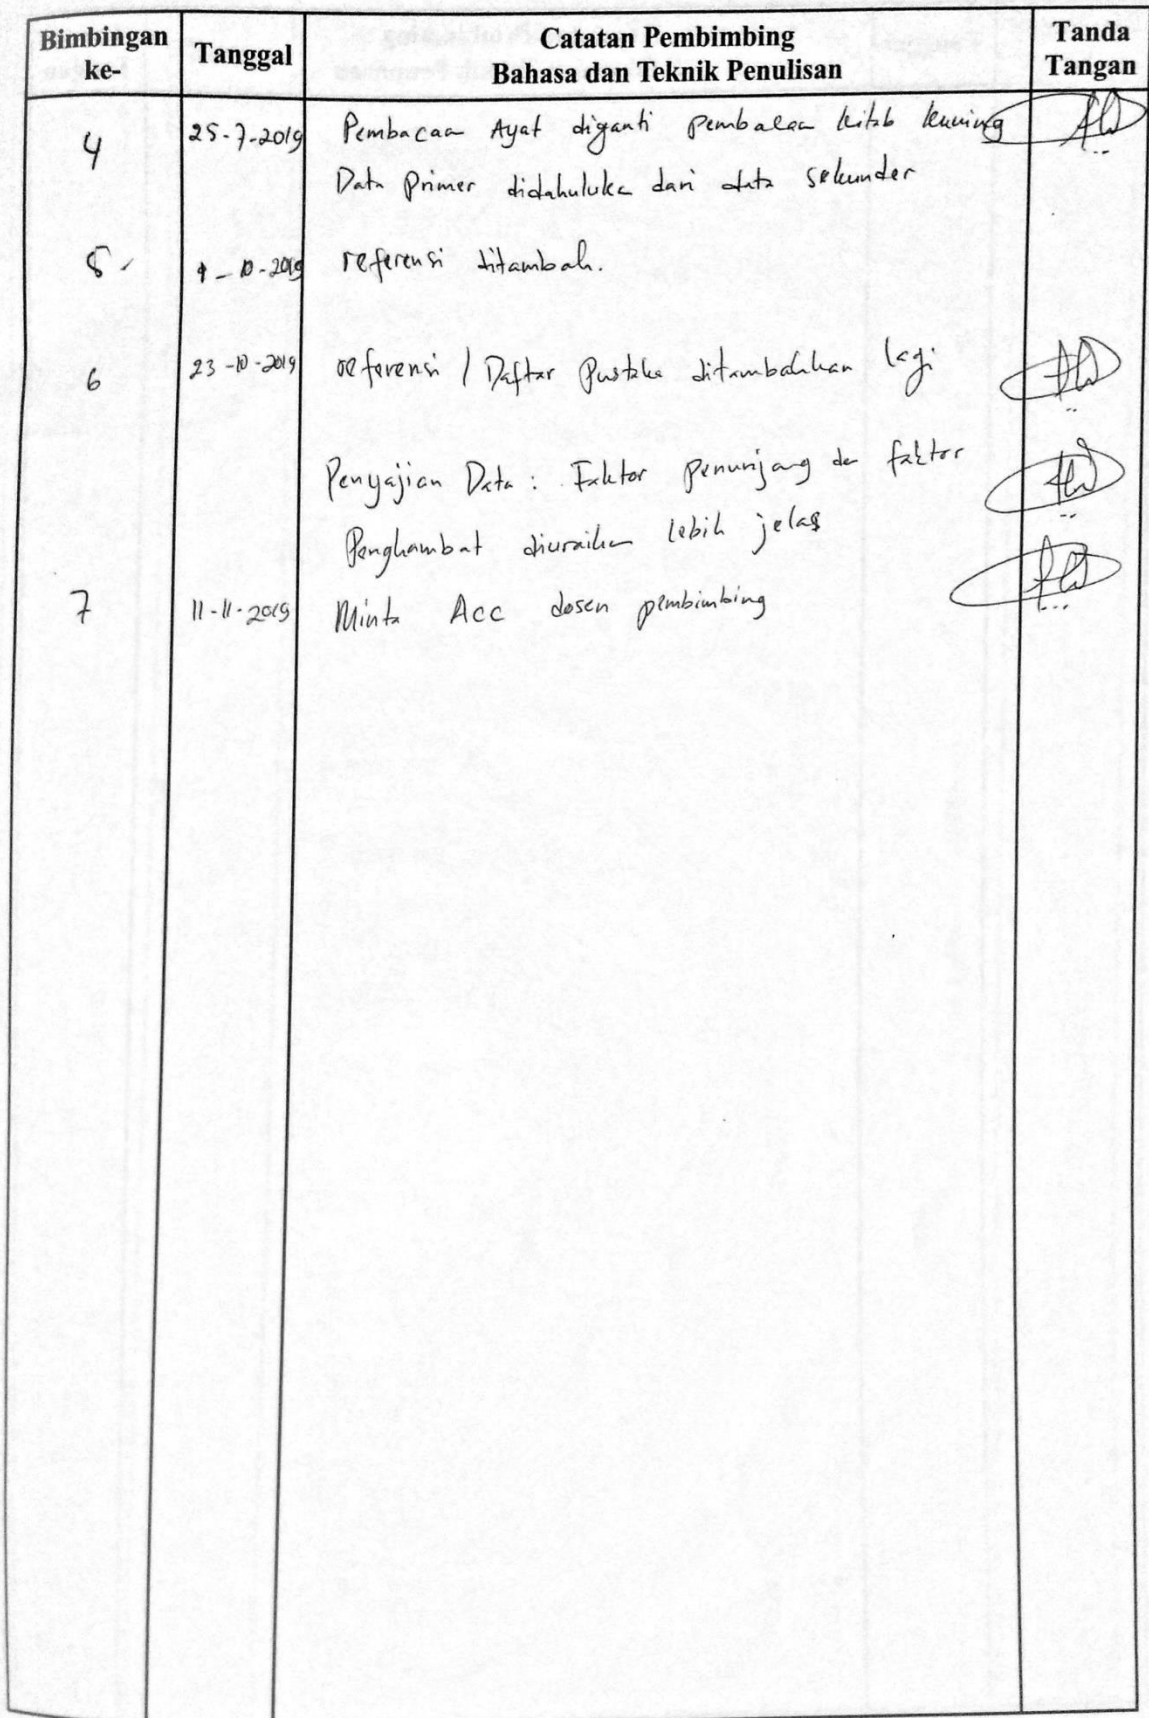 Bimbingan ke-
Tanggal
Catatan Pembimbing
Bahasa dan Teknik Penulisan
Tanda Tangan
4 25-7-2019 Pembacaan Ayat diganti pembacaan kitab kuning
Data Primer didahuluka dari data sekunder
5. -10-2019 referensi ditambah.
6 23-10-2019 referensi / Daftar Pustaka ditambahkan lagi
Penyajian Data : Faktor penunjang dan faktor
Penghambat diuraikan lebih jelas
7 11-11-2019 Minta Acc dosen pembimbing